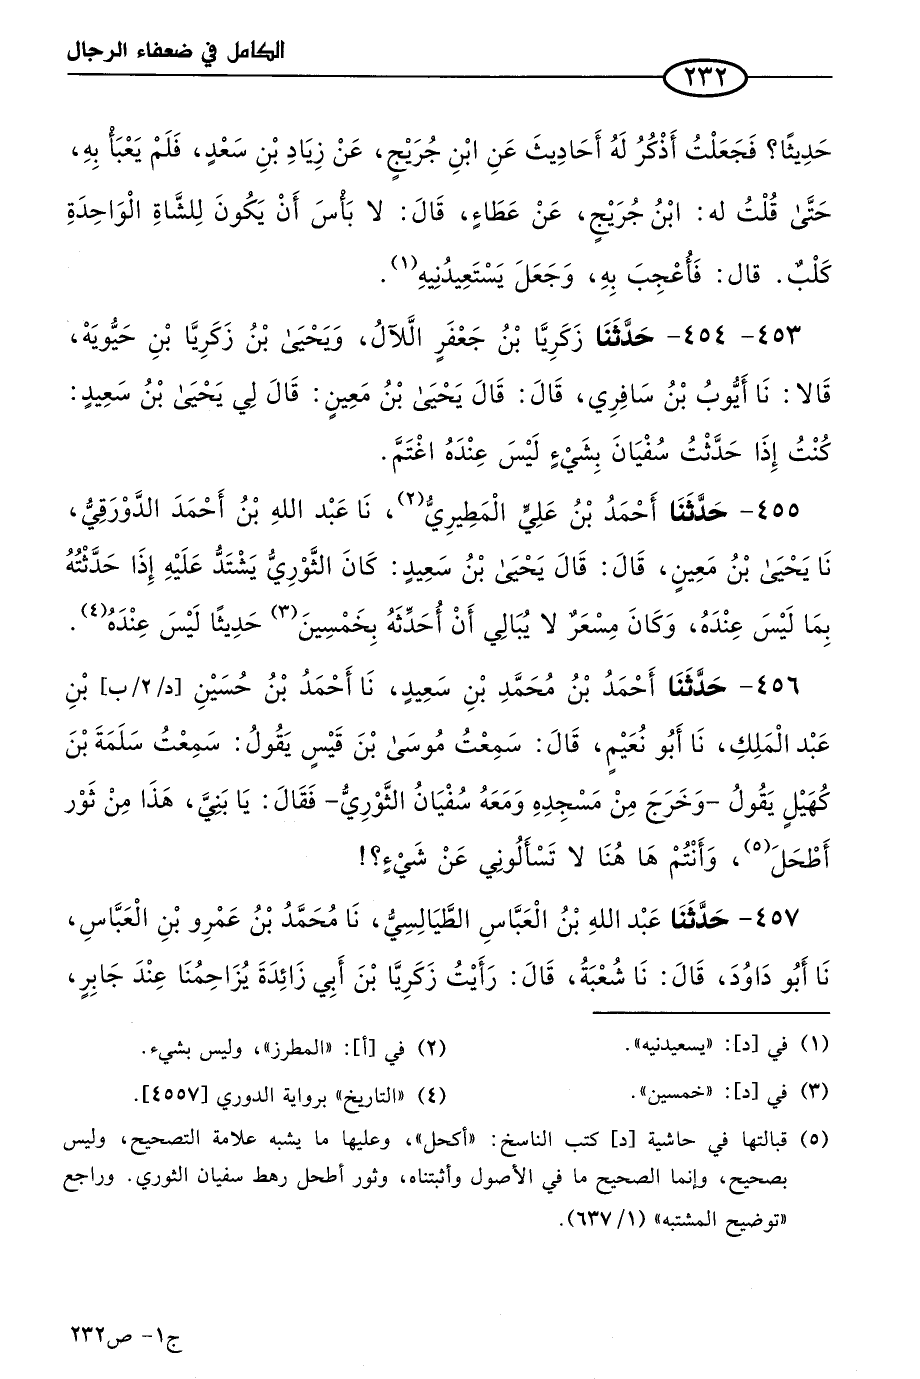 الكامل في ضعفاء الرجال
٢٣٢
حَدِيثًا؟ فَجَعَلْتُ أَذْكُرُ لَهُ أَحَادِيثَ عَنِ ابْنِ جُرَيْجٍ، عَنْ زِيَادِ بْنِ سَعْدٍ، فَلَمْ يَعْبَأْ بِهِ،
حَتَّىٰ قُلْتُ له: ابْنُ جُرَيْجٍ، عَنْ عَطَاءٍ، قَالَ: لا بَأْسَ أَنْ يَكُونَ لِلشَّاةِ الْوَاحِدَةِ
كَلْبٌ. قال: فَأُعْجِبَ بِهِ، وَجَعَلَ يَسْتَعِيدُنِيهِ(١).
٤٥٣- ٤٥٤- حَدَّثَنَا زَكَرِيَّا بْنُ جَعْفَرٍ اللَّآلُ، وَيَحْيَىٰ بْنُ زَكَرِيَّا بْنِ حَيُّويَهْ،
قَالا: نَا أَيُّوبُ بْنُ سَافِرِي، قَالَ: قَالَ يَحْيَىٰ بْنُ مَعِينٍ: قَالَ لِي يَحْيَىٰ بْنُ سَعِيدٍ:
كُنْتُ إِذَا حَدَّثْتُ سُفْيَانَ بِشَيْءٍ لَيْسَ عِنْدَهُ اغْتَمَّ.
٤٥٥- حَدَّثَنَا أَحْمَدُ بْنُ عَلِيٍّ الْمَطِيرِيُّ(٢)، نَا عَبْد اللهِ بْنُ أَحْمَدَ الدَّوْرَقِيُّ،
نَا يَحْيَىٰ بْنُ مَعِينٍ، قَالَ: قَالَ يَحْيَىٰ بْنُ سَعِيدٍ: كَانَ الثَّوْرِيُّ يَشْتَدُّ عَلَيْهِ إِذَا حَدَّثْتُهُ
بِمَا لَيْسَ عِنْدَهُ، وَكَانَ مِسْعَرٌ لا يُبَالِي أَنْ أُحَدِّثَهُ بِخَمْسِينَ(٣) حَدِيثًا لَيْسَ عِنْدَهُ(٤).
٤٥٦- حَدَّثَنَا أَحْمَدُ بْنُ مُحَمَّدِ بْنِ سَعِيدٍ، نَا أَحْمَدُ بْنُ حُسَيْنِ [د/٢/ب] بْنِ
عَبْد الْمَلِكِ، نَا أَبُو نُعَيْمٍ، قَالَ: سَمِعْتُ مُوسَىٰ بْنَ قَيْسٍ يَقُولُ: سَمِعْتُ سَلَمَةَ بْنَ
كُهَيْلٍ يَقُولُ -وَخَرَجَ مِنْ مَسْجِدِهِ وَمَعَهُ سُفْيَانُ الثَّوْرِيُّ- فَقَالَ: يَا بَنِيَّ، هَذَا مِنْ ثَوْر
أَطْحَلَ(٥)، وَأَنْتُمْ هَا هُنَا لا تَسْأَلُونِي عَنْ شَيْءٍ؟!
٤٥٧- حَدَّثَنَا عَبْد اللهِ بْنُ الْعَبَّاسِ الطَّيَالِسِيُّ، نَا مُحَمَّدُ بْنُ عَمْرِو بْنِ الْعَبَّاسِ،
نَا أَبُو دَاوُدَ، قَالَ: نَا شُعْبَةُ، قَالَ: رَأَيْتُ زَكَرِيَّا بْنَ أَبِي زَائِدَةَ يُزَاحِمُنَا عِنْدَ جَابِرٍ،
(١) في [د]: «يسعيدنيه».
(٢) في [أ]: «المطرز»، وليس بشيء.
(٣) في [د]: «خمسين».
(٤) «التاريخ» برواية الدوري [٤٥٥٧].
(٥) قبالتها في حاشية [د] كتب الناسخ: «أكحل»، وعليها ما يشبه علامة التصحيح، وليس
بصحيح، وإنما الصحيح ما في الأصول وأثبتناه، وثور أطحل رهط سفيان الثوري. وراجع
«توضيح المشتبه» (١/ ٦٣٧).
ج١- ص٢٣٢